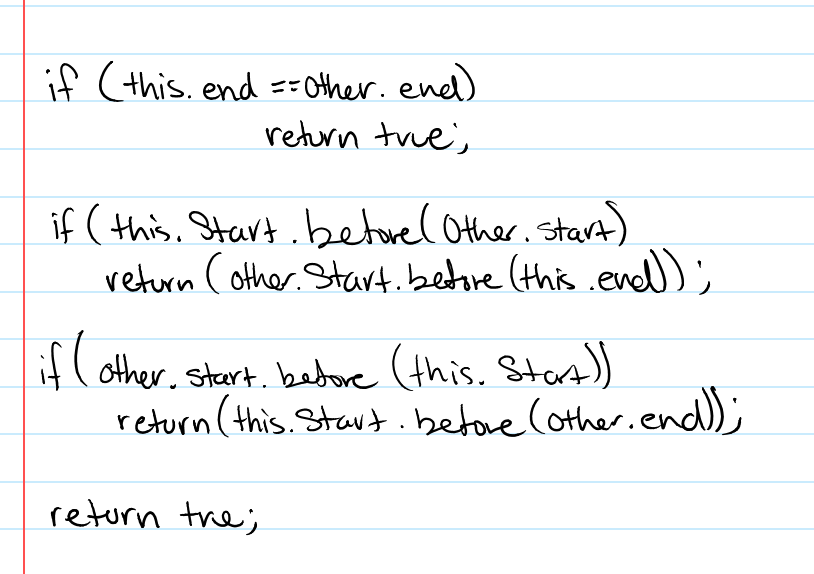 if (this.end ==other.end)
return true;
if (this.Start.before(Other.start)
return (other.Start.before (this.end));
if (other.start.before (this.Start))
return (this.Start.before (other.end));
return tre;